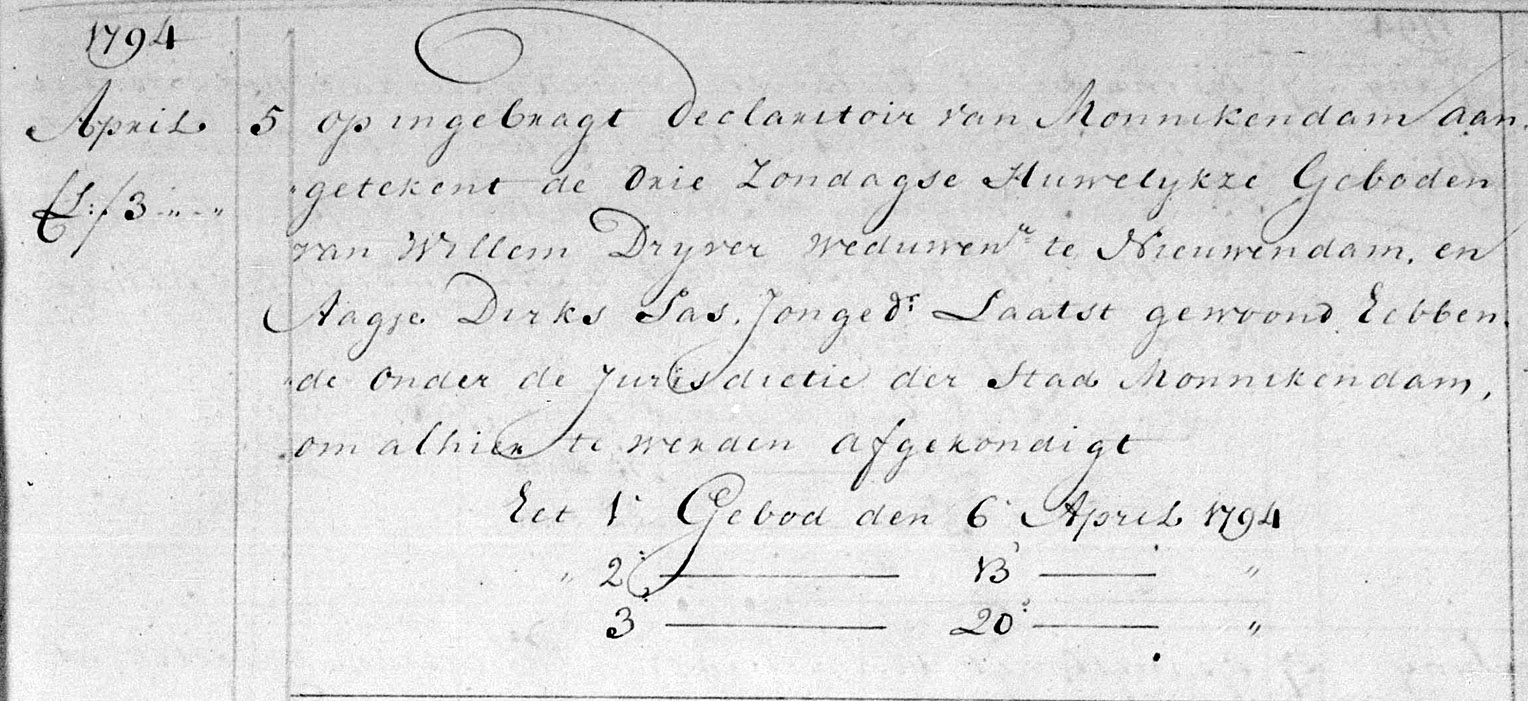 1794
April 5 op ingebragt Declaritoir van Monnikendam aan
getekent de Drie Zondagse Huwelykze Geboden
Cl: f 3 „ „
van Willem Dryver weduwenr te Nieuwendam, en
Aagje Dirks Sas, Jonge dr Laatst gewoond Hebben
de onder de Jurisdictie der Stad Monnikendam,
om alhier te werden afgekondigt
Het 1e Gebod den 6e April 1794
„ 2e — 13e — „
3e — 20e — „